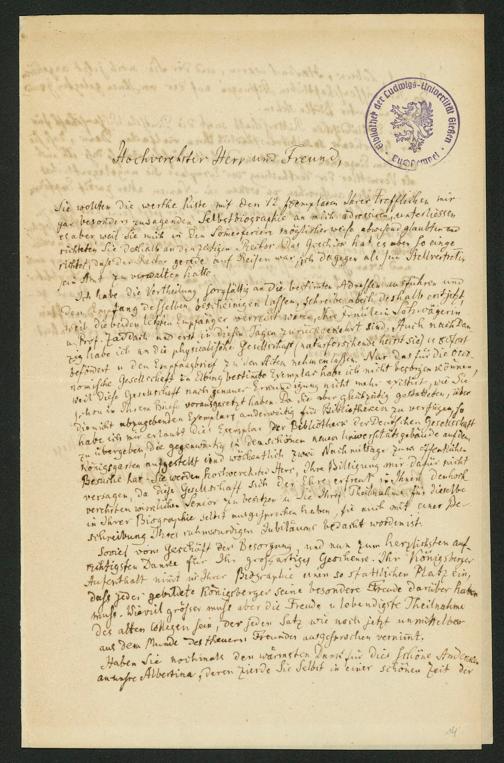 Bibliothek der Ludwigs-Universität Gießen
Hochverehrter Herr und Freund,
Sie wollten die werthe Kiste mit den 12 Exemplaren Ihrer trefflichen mir
gar besonders zusagenden Selbstbiographie an mich adressiren, unterliessen
es aber weil Sie mich in den Sommerferien möglicher weise abwesend glaubten und
richteten Sie deshalb an den zeitigen Rector. Das Geschick hat es aber so einge
richtet, daß der Rector gerade auf Reisen war, ich dagegen als sein Stellvertreter
sein Amt zu verwalten hatte.
Ich habe die Vertheilung sorgfältig an die bestimmten Adressen ausführen und
den Empfang desselben bescheinigen lassen, schreibe aber deshalb erst jetzt
weil die beiden letzten Empfänger verreist waren, Ihre Fräulein Schwägerin
u. Prof. Zaddach und erst in diesen Tagen zurückgekehrt sind. Auch nach Dan
zig habe ich an die physicalische Gesellschaft, naturforschende heißt sie,
befördert u den Empfangsbrief zu den Akten nehmen lassen. Nur das für die oeco
nomische Gesellschaft in Elbing bestimte Exemplar habe ich nicht besorgen können,
weil diese Gesellschaft nach genauer Erkundigung nicht mehr existirt, wie Sie
schon in Ihrem Briefe vorausgesetzt haben. Da Sie aber gleichzeitig gestatteten, über
die nicht abzugebenden Exemplare anderweitig für Bibliotheken zu verfügen, so
habe ich mir erlaubt dies Exemplar der Bibliothek der Deutschen Gesellschaft
zu übergeben die gegenwärtig in dem schönen neuen Universitätsgebäude auf dem
Königsgarten aufgestellt und wöchentlich zwei Nachmittage zum öffentlichen
Besuche hat. Sie werden hochverehrter Herr, Ihre Billigung mir dafür nicht
versagen, da diese Gesellschaft sich der Ehre erfreut in Ihnen den hoch
verehrten wirklichen Senior zu besitzen u Sie Ihre Theilnahme für dieselbe
in Ihrer Biographie selbst ausgesprochen haben, sie auch mit einer Be-
schreibung Ihres ruhmwürdigen Jubiläums bedacht worden ist.
Soviel vom Geschäft der Besorgung, und nun zum herzlichsten auf
richtigsten Danke für Ihr großartiges Geschenk. Ihr Königsberger
Aufenthalt nimt in Ihrer Biographie einen so stattlichen Platz ein,
daß jeder gebildete Königsberger seine besondere Freude darüber haben
muß. Wieviel größer muß aber die Freude u lebendigste Theilnahme
des alten Collegen sein, der jeden Satz wie noch jetzt unmittelbar
aus dem Munde des theuern Freundes ausgesprochen vernimt.
Haben Sie nochmals den wärmsten Dank für dies schöne Andenken
an unsre Albertina, deren Zierde Sie selbst in einer schönen Zeit der